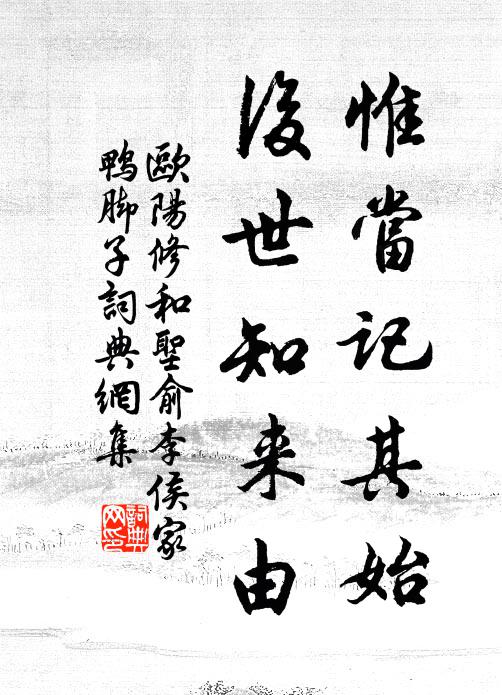 惟當記其始
後世知来由
歐陽修和聖俞李侯家
鴨脚子詞典網集
詞典网印